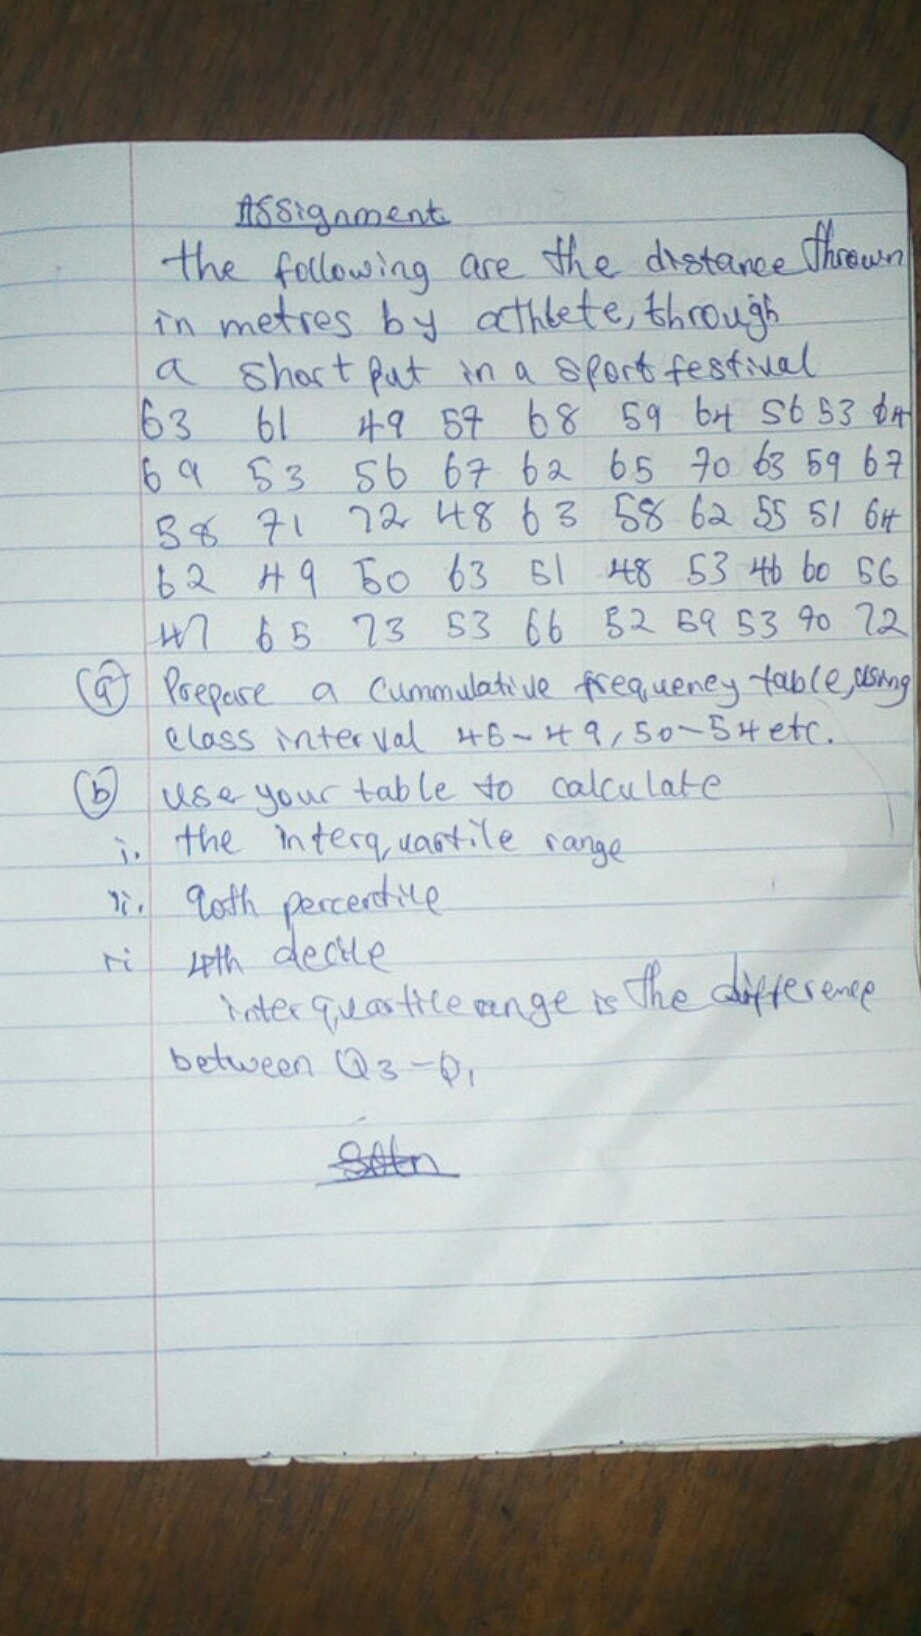 Assignment
the following are the distance thrown
in metres by athlete, through
a short put in a sport festival
63 61 49 57 68 59 64 56 53 64
69 53 56 67 62 65 70 63 59 67
58 71 72 48 63 58 62 55 51 64
62 49 50 63 51 48 53 46 60 56
47 65 73 53 66 52 59 53 70 72
(a) Prepare a cummulative frequency table, using
class interval 45-49, 50-54 etc.
(b) use your table to calculate
i. the interquartile range
ii. 90th percentile
ri 4th decile
interquartile range is the difference
between Q3-Q1